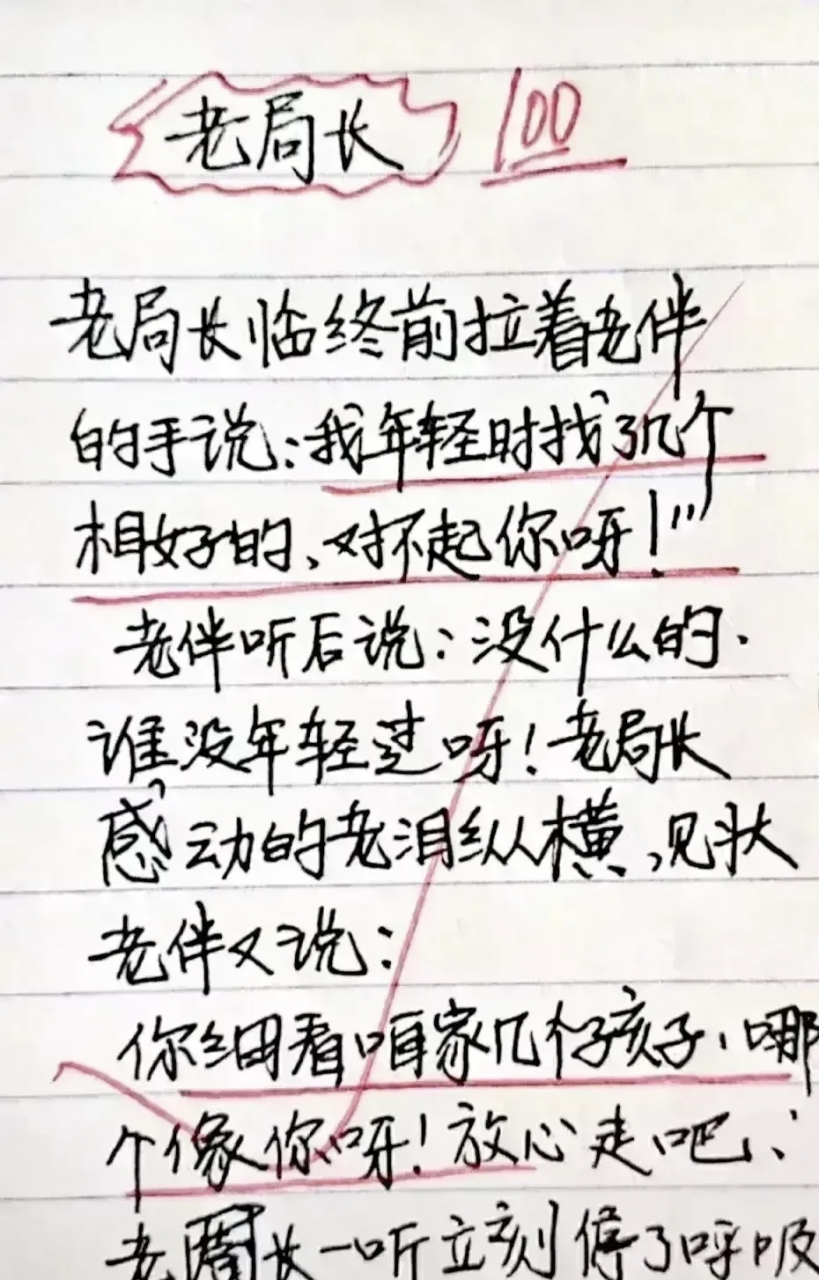 老局长 100
老局长临终前拉着老伴
的手说:我年轻时找了几个
相好的、对不起你呀!"
老伴听后说:没什么的.
谁没年轻过呀!老局长
感动的老泪纵横,见状
老伴又说:
你细看咱家几个孩子,哪
个像你呀!放心走吧、
老局长一听立刻停了呼吸